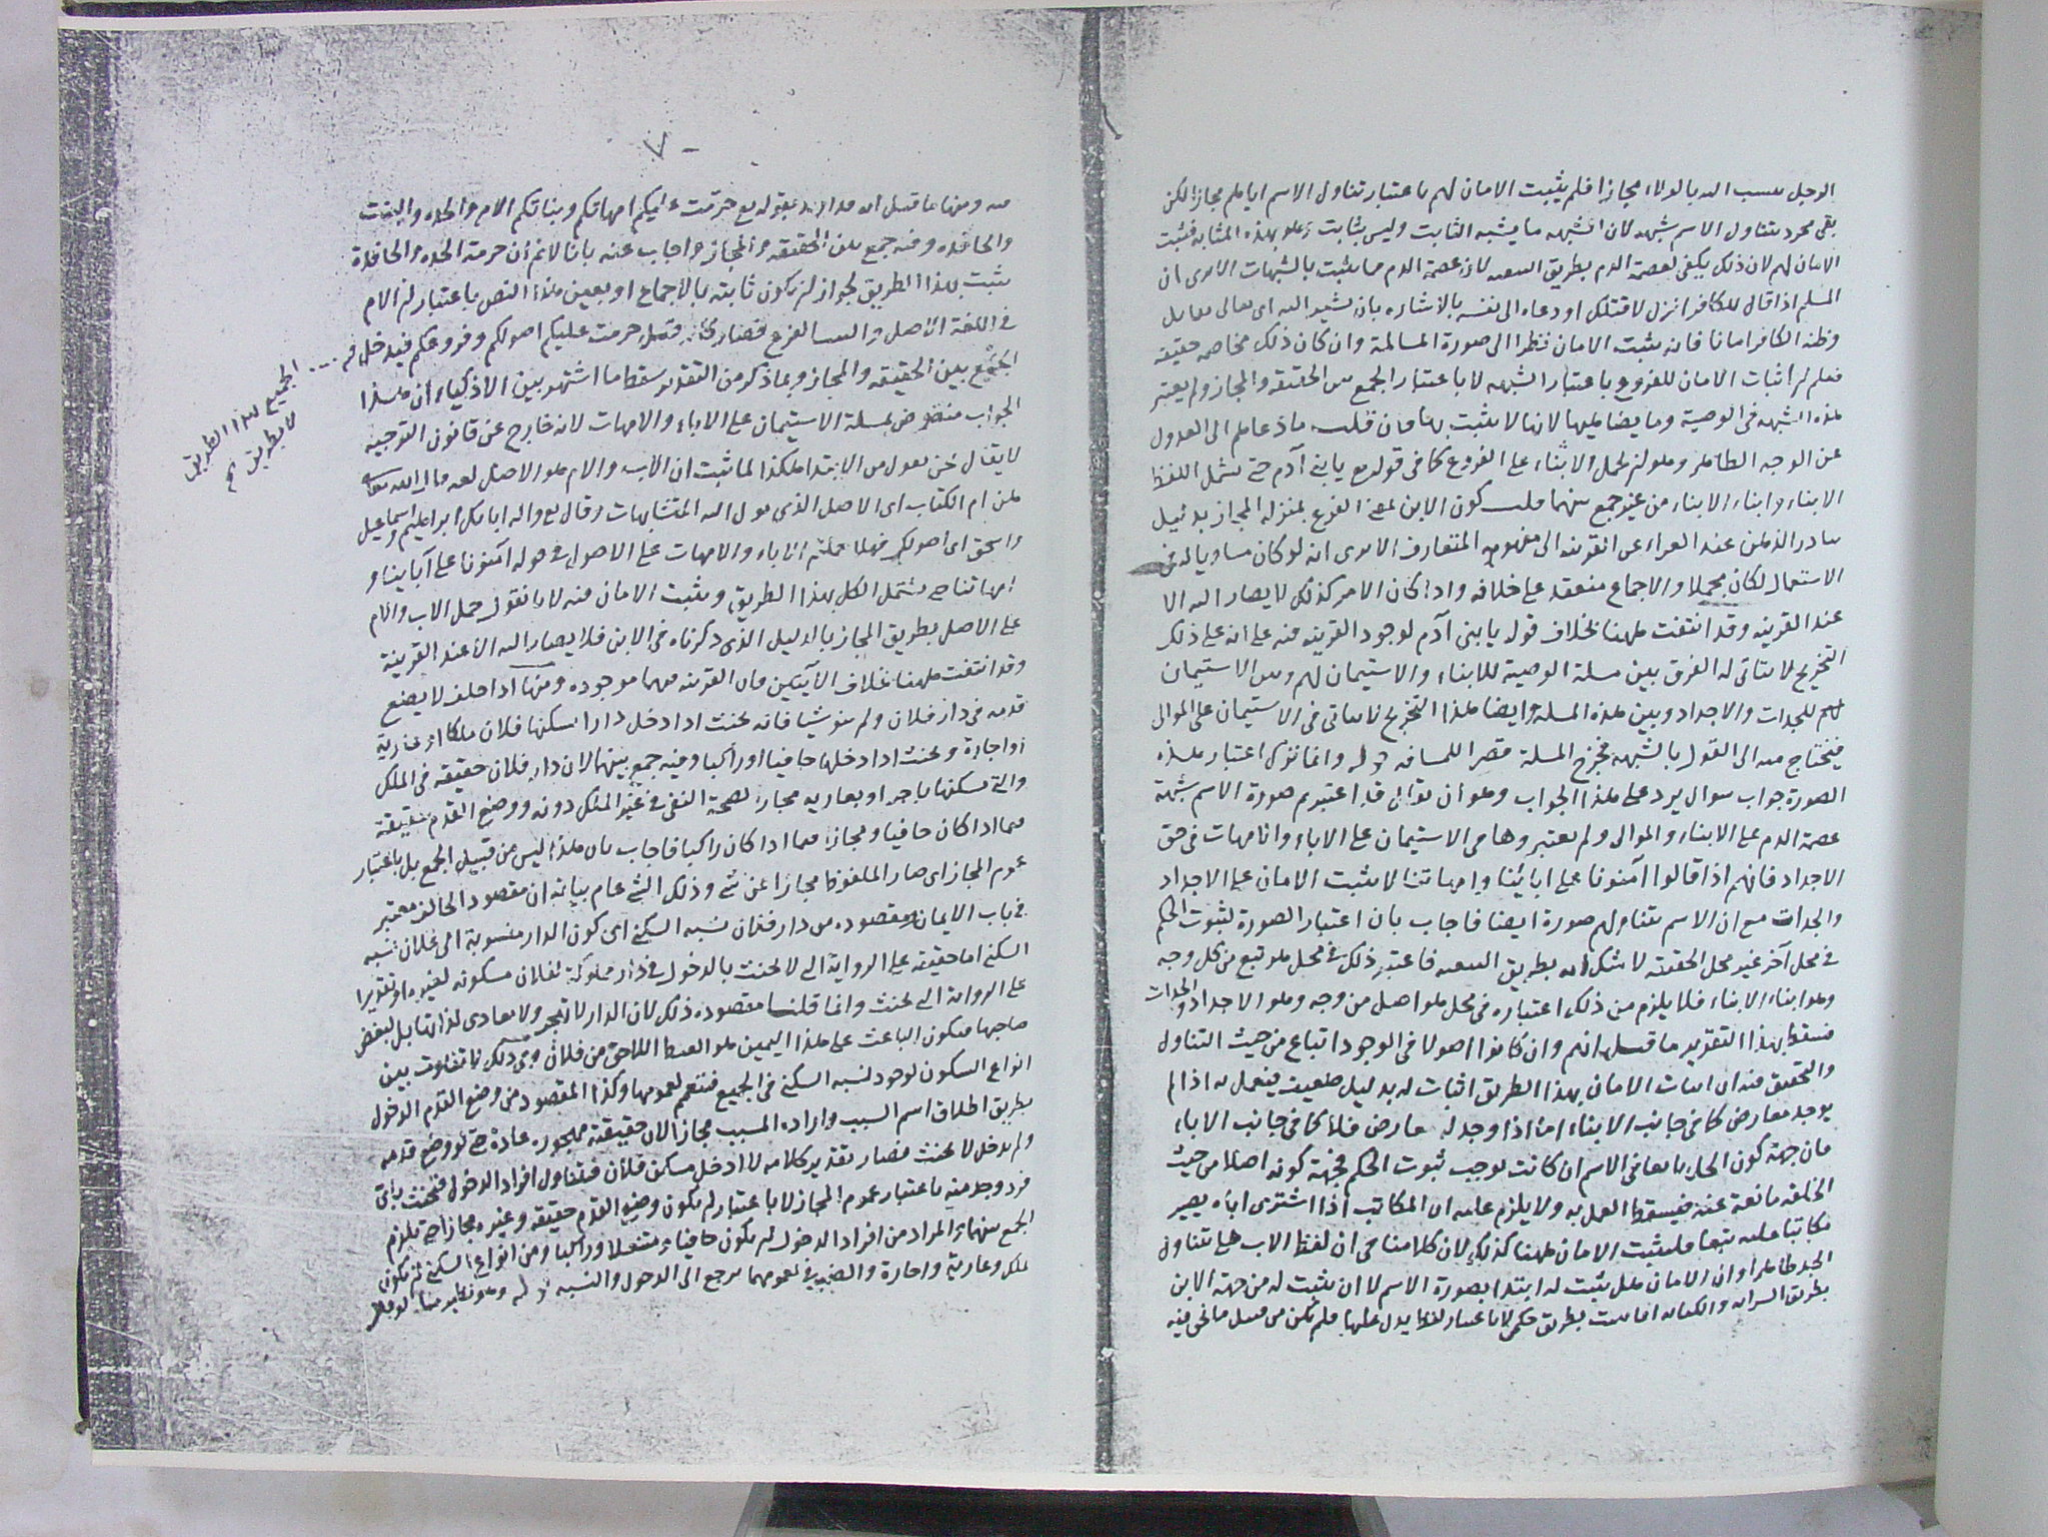 الرجل ينسب اليه بالولاء مجازا فلم يثبت الامان لهم باعتبار تناول الاسم اياهم مجازا لكن
بقى مجرد تناول الاسم شبهه لان الشبهه ما يشبه الثابت وليس بثابت وهو بهذه المثابه فيثبت
الامان لهم لان ذلك يكفى لعصمة الدم بطريق التبعيه لان عصمة الدم مما يثبت بالشبهات الا يرى ان
المسلم اذا قال للكافر انزل لاقتلك او دعاه الى نفسه بالاشاره بان يشير اليه اى تعالى
وظنه الكافر امانا فانه يثبت الامان نظرا الى صورة المسالمة وان كان ذلك مخاصمه حقيقه
فعلم ان اثبات الامان للفروع باعتبار الشبهه لا باعتبار الجمع بين الحقيقه والمجاز ولم يعتبر
هذه الشبهه فى الوصية وما يضاهيها لانها لا يثبت بها فان قلت ماذا دعاهم الى العدول
عن الوجه الظاهر وهو ان يحمل الابناء على الفروع كما فى قوله تع يا بنى آدم حتى يشمل اللفظ
الابناء وابناء الابناء من غير جمع بينهما قلت كون الابن بمعنى الفرع بمنزله المجاز بدليل
تبادر الذهن عند العراء عن القرينه الى مفهومه المتعارف الا يرى انه لو كان مساويا له فى
الاستعمال لكان مجملا والاجماع منعقد على خلافه واذا كان الامر كذلك لا يصار اليه الا
عند القرينه وقد انتفت ههنا بخلاف قوله يا بنى آدم لوجود القرينه فيه على انه على ذلك
التخريج لا يتاتى له الفرق بين مسلة الوصية للابناء والاستيمان لهم وبين الاستيمان
لهم للجدات والاجداد وبين هذه المسله وايضا هذا التخريج لا يتاتى فى الاستيمان على الموالى
فيحتاج فيه الى القول بالشبهه فخرج المسلة قصرا للمسافه قوله وانما ترك اعتبار هذه
الصورة جواب سوال يرد على هذا الجواب وهو ان يقال قد اعتبرتم صورة الاسم شبهة
عصمة الدم على الابناء والموالى ولم يعتبروها فى الاستيمان على الاباء والامهات فى حق
الاجداد فانهم اذا قالوا آمنونا على ابائنا وامهاتنا لا يثبت الامان على الاجداد
والجدات مع ان الاسم يتناولهم صورة ايضا فاجاب بان اعتبار الصورة لثبوت الحكم
فى محل آخر غير محل الحقيقة لا شك انه بطريق التبعيه فاعتبر ذلك فى محل هو تبع من كل وجه
وهو ابناء الابناء فلا يلزم من ذلك اعتباره فى محل هو اصل من وجه وهو الاجداد والجدات
فسقط بهذا التقرير ما قيل انهم وان كانوا اصولا فى الوجود اتباع من حيث التناول
والتحقيق فيه ان اثبات الامان بهذا الطريق اثبات له بدليل ضعيف فيعمل به اذا لم
يوجد معارض كما فى جانب الابناء اما اذا وجد له معارض فلا كما فى جانب الاباء
فان جهة كون الجد تابعا فى الاسم ان كانت توجب ثبوت الحكم فجهة كونه اصلا من حيث
الخلقه مانعة عنه فيسقط العمل به ولا يلزم عليه ان المكاتب اذا اشترى اباه يصير
مكاتبا عليه تبعا فليثبت الامان ههنا كذلك لان كلامنا فى ان لفظ الاب هل يتناول
الجد ظاهرا وان الامان هل يثبت له ابتدا بصورة الاسم لا ان يثبت له من جهة الابن
بطريق السرايه والكتابه انما تثبت بطريق حكمى لا باعتبار لفظ يدل عليها فلم يكن من قبيل ما نحن فيه
٧
فيه ومنها ما قيل انه قد اريد بقوله تع حرمت عليكم امهاتكم وبناتكم الام والجده والبنت
والحافده وفيه جمع بين الحقيقه والمجاز واجاب عنه بانا لا نم ان حرمة الجده والحافدة
يثبت بهذا الطريق لجواز ان يكون ثابته بالاجماع او بعين هذا النص باعتبار ان الام
فى اللغة الاصل والبنت الفرع فصار كانه قيل حرمت عليكم اصولكم وفروعكم فيدخل فيه
الجميع بهذا الطريق
لا بطريق
الجمع بين الحقيقه والمجاز وبما ذكر من التقدير سقط ما اشتهر بين الاذكياء ان هذا
الجواب منقوض بمسلة الاستيمان على الاباء والامهات لانه خارج عن قانون التوجيه
لا يقال نحن نعول من الابتداء هكذا لما ثبت ان الاب والام هو الاصل لغه قال الله تعالى
هن ام الكتاب اى الاصل الذى يول اليه المتشابهات وقال تع واله ابائك ابراهيم واسماعيل
واسحق اى اصولك فهلا حملتم الاباء والامهات على الاصول فى قوله آمنونا على آبائنا و
امهاتنا حتى يشتمل الكل بهذا الطريق ويثبت الامان فيه لانا نقول حمل الاب والام
على الاصل بطريق المجاز بالدليل الذى ذكرناه فى الابن فلا يصار اليه الا عند القرينة
وقد انتفت ههنا بخلاف الآيتين فان القرينه فيهما موجوده ومنها اذا حلف لا يضع
قدمه فى دار فلان ولم ينو شيئا فانه يحنث اذا دخل دارا يسكنها فلان ملكا او عارية
او اجارة ويحنث اذا دخلها حافيا او راكبا وفيه جمع بينهما لان دار فلان حقيقه فى الملك
والتى يسكنها باجر او بعاريه مجاز لصحة النفى فى غير الملك دونه ووضع القدم حقيقة
فيما اذا كان حافيا ومجاز فيما اذا كان راكبا فاجاب بان هذا ليس من قبيل الجمع بل باعتبار
عموم المجاز اى صار الملفوظ مجازا عن شى وذلك الشى عام بيانه ان مقصود الحالف معتبر
فى باب الايمان ومقصوده من دار فلان نسبه السكنى اى كون الدار منسوبة الى فلان نسبه
السكنى اما حقيقه على الرواية التى لا يحنث بالدخول فى دار مملوكة لفلان مسكونه لغيره او تقديرا
على الرواية التى يحنث وانما قلنا مقصوده ذلك لان الدار لا تهجر ولا يعادى لذاتها بل لبغض
صاحبها فيكون الباعث على هذا اليمين هو الغيظ اللاحق من فلان وفى ذلك لا تفاوت بين
انواع السكون لوجود نسبه السكنى فى الجميع فيتعمم لعمومها وكذا المقصود من وضع القدم الدخول
بطريق اطلاق اسم السبب واراده المسبب مجازا لان حقيقته مهجوره عادة حتى لو وضع قدمه
ولم يدخل لا يحنث فصار تقدير كلامه لا ادخل مسكن فلان فيتناول افراد الدخول فيحنث باى
فرد وجد منه باعتبار عموم المجاز لا باعتبار ان يكون وضع القدم حقيقه وغيره مجازا حتى يلزم
الجمع بينهما والمراد من افراد الدخول ان يكون حافيا ومتنعلا وراكبا ومن انواع السكنى ان يكون
ملك وعارية واجارة والضمير فى لعمومهما يرجع الى الدخول والنسبه قوله وهو نظير